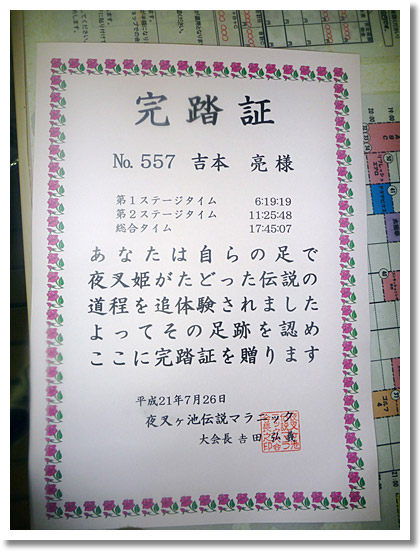 完踏証
No. 557 吉本 亮 様
第1ステージタイム 6:19:19
第2ステージタイム 11:25:48
総合タイム 17:45:07
あなたは自らの足で
夜叉姫がたどった伝説の
道程を追体験されました
よってその足跡を認め
ここに完踏証を贈ります
平成21年7月26日
夜叉ヶ池伝説マラニック
大会長 吉田 弘義